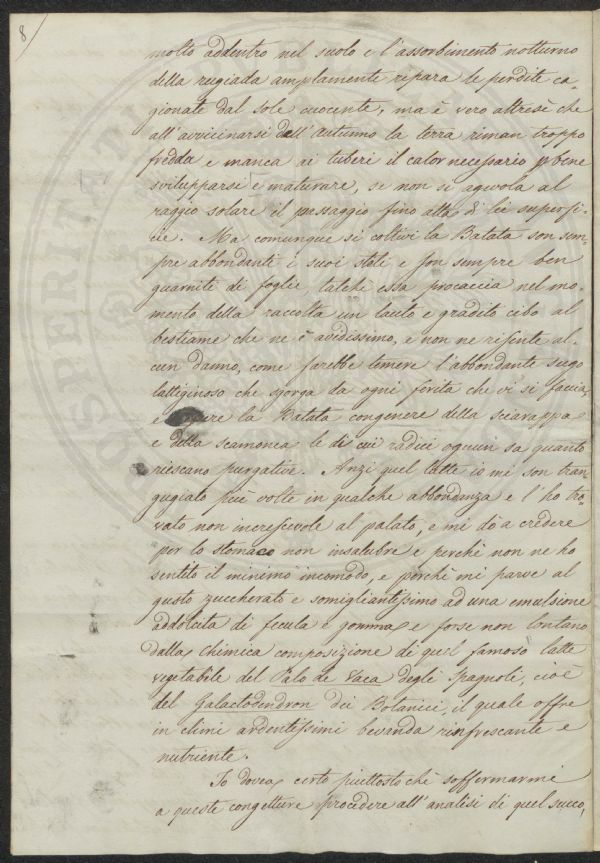 8/
molto addentro nel suolo e l'assorbimento notturno
della rugiada amplamente ripara le perdite ca-
gionate dal sole cuocente, ma è vero altresè che
all'avvicinarsi dell'Autunno la terra riman troppo
fredda e manca ai tuberi il calor necessario p bene
svilupparsi e maturare, se non si agevola al
raggio solare il passaggio fino alla di lei superfi-
cie. Ma comunque si coltivi la Batata son sem-
pre abbondanti i suoi steli e son sempre ben
guarniti di foglie, talchè essa procaccia nel mo-
mento della raccolta un lauto e gradito cibo al
bestiame che ne è avidissimo, e non ne risente al-
cun danno, come farebbe temere l'abbondante sugo
lattiginoso che sgorga da ogni ferita che vi si faccia,
e la Batata congenere della sciarappa
e della scamonea le di cui radici ognun sa quanto
riescano purgative. Anzi quel latte io mi son tran-
gugiato più volte in qualche abbondanza e l'ho tro-
vato non increscevole al palato, e mi dò a credere
per lo stomaco non insalubre e perchè non ne ho
sentito il minimo incomodo, e perchè mi parve al
gusto zuccherato e somigliantissimo ad una emulsione
addolcita di fecula e gomma e forse non lontano
dalla chimica composizione di quel famoso latte
vegetabile del Palo de Vaca degli Spagnoli, cioè
del Galactodendron dei Botanici, il quale offre
in climi ardentissimi bevanda rinfrescante e
nutriente.
Io dovea certo piuttosto che soffermarmi
a queste congetture procedere all'analisi di quel succo,